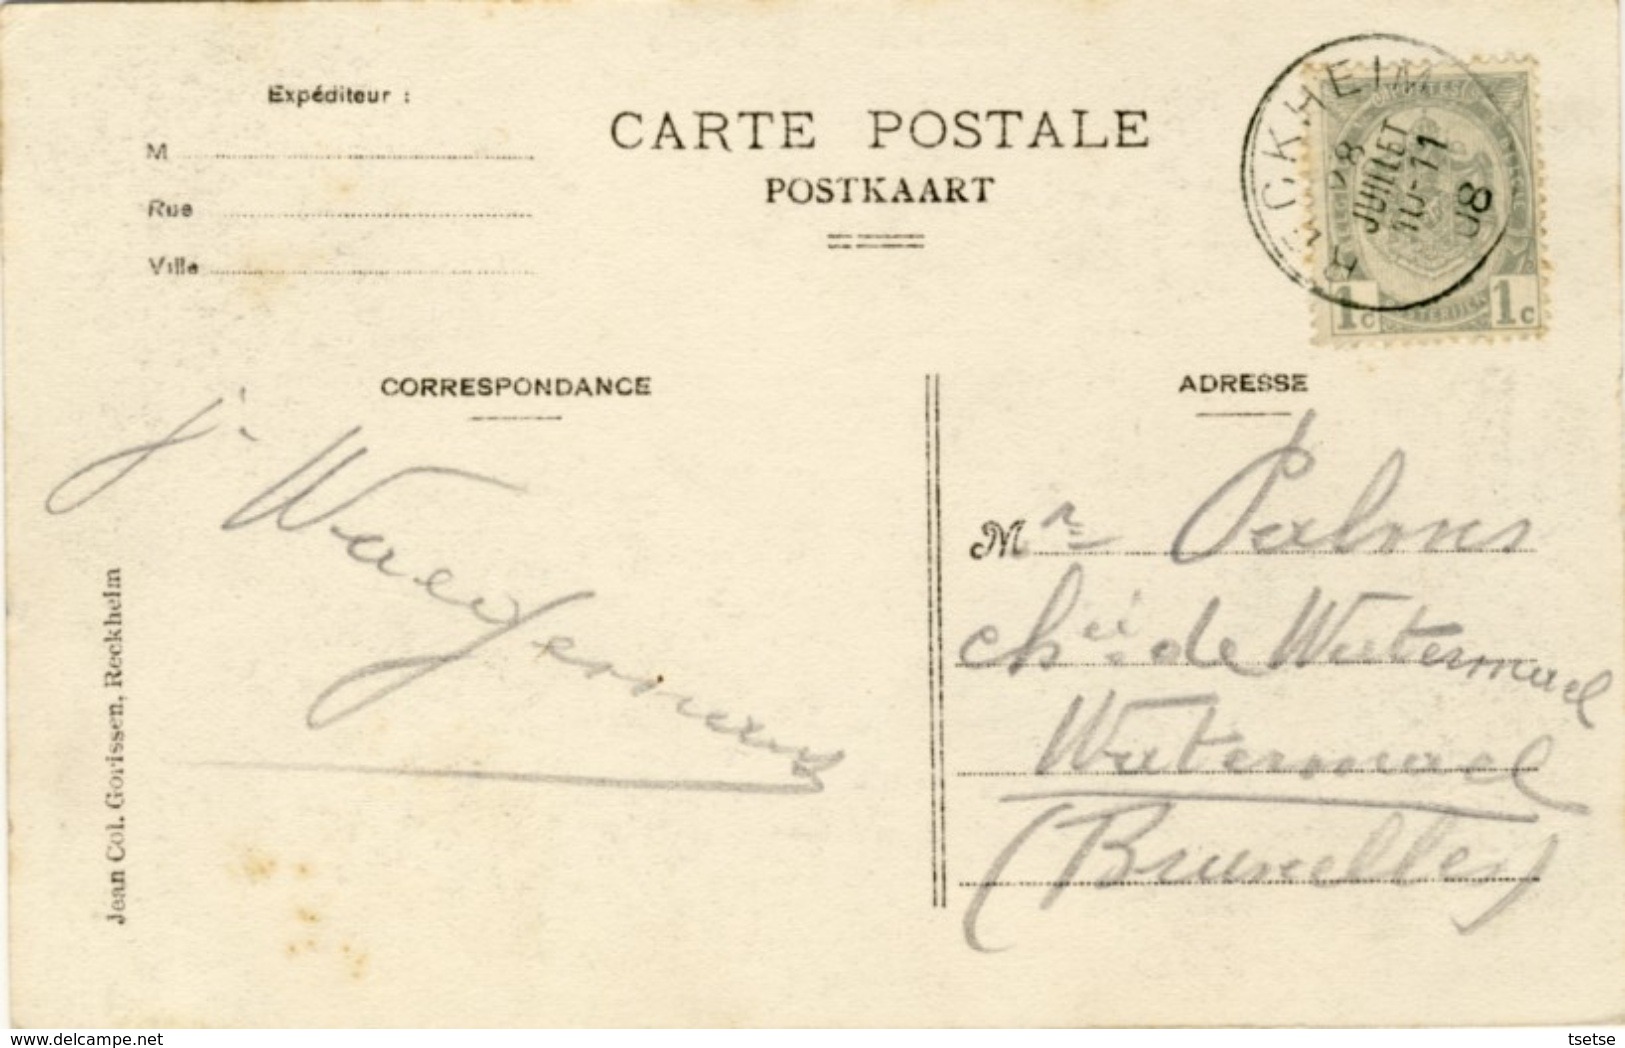 Expéditeur :
M
Rue
Ville
CARTE POSTALE
POSTKAART
RECKHEIM
28
JUILLET
10-11
08
1c 1c
CORRESPONDANCE
J. Waegemans
Jean Col. Gorissen, Reckheim
ADRESSE
Mr Palms
chée de Watermael
Watermael
(Bruxelles)
www.delcampe.net
tsetse